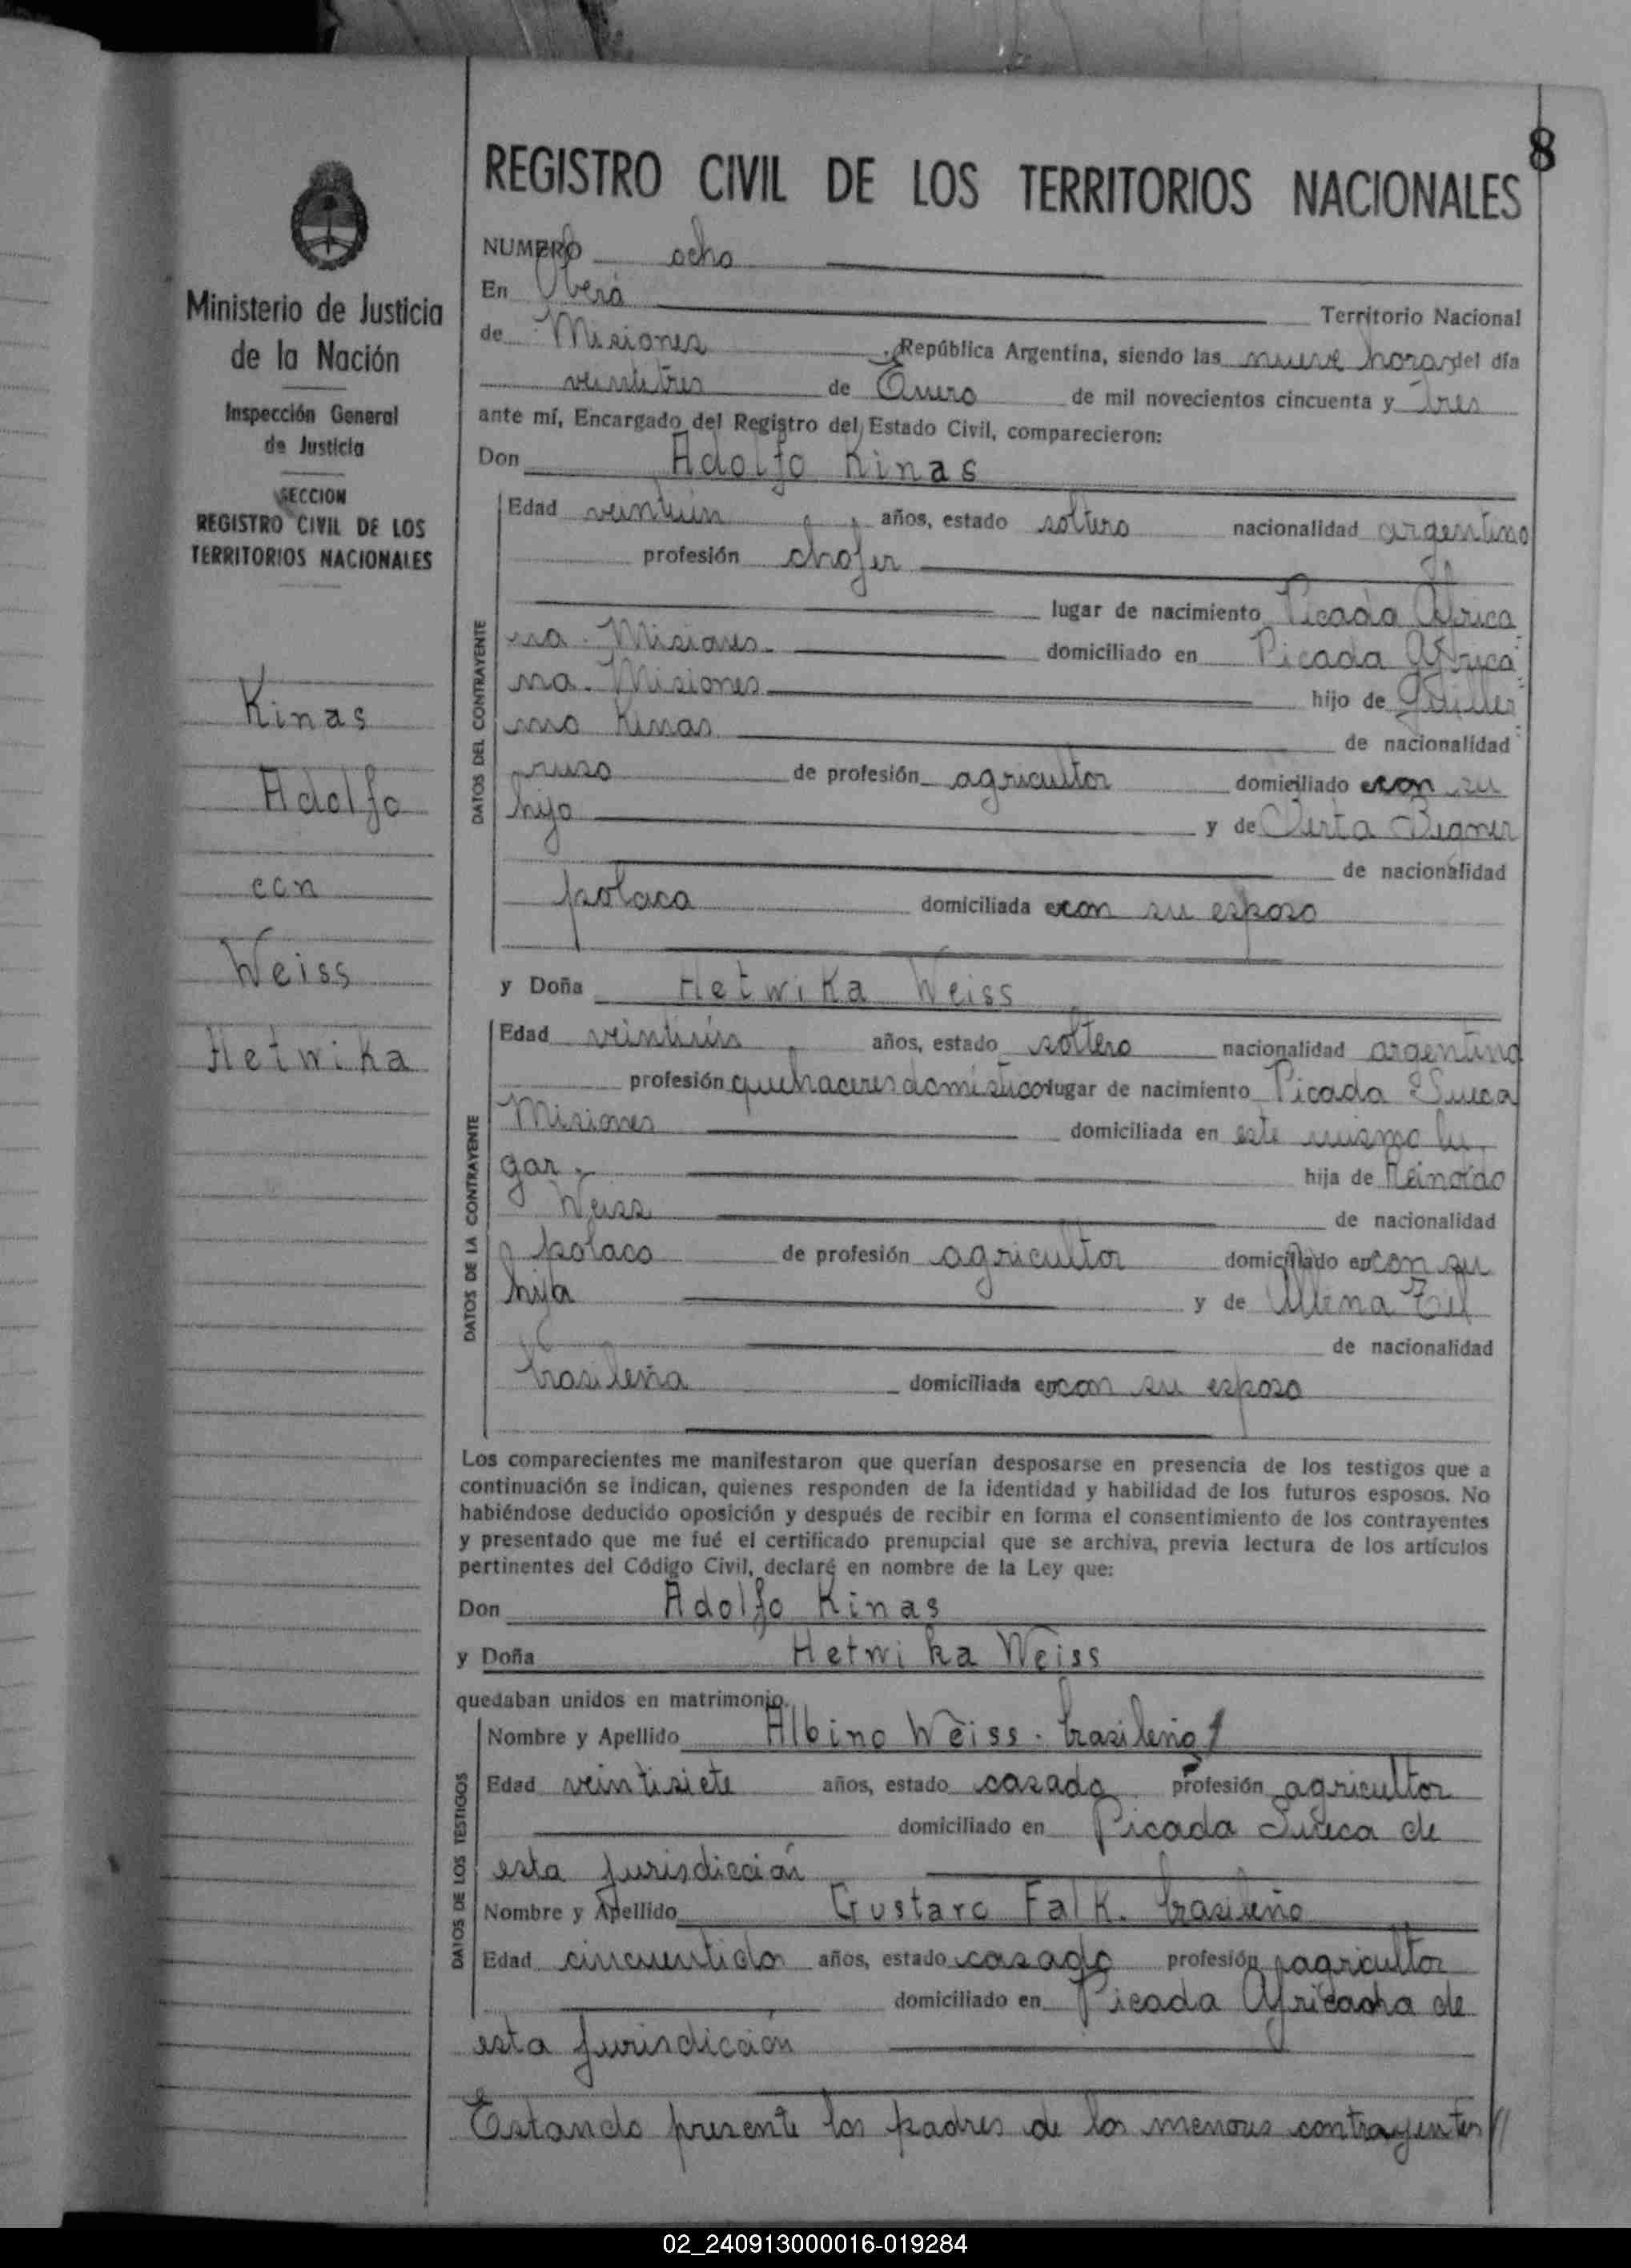 8
REGISTRO CIVIL DE LOS TERRITORIOS NACIONALES
Ministerio de Justicia
de la Nación
Inspección General
de Justicia
SECCION
REGISTRO CIVIL DE LOS
TERRITORIOS NACIONALES
Kinas
Adolfo
con
Weiss
Hetwika
NUMERO ocho
En Oberá Territorio Nacional
de Misiones, República Argentina, siendo las nueve horas del día
veintitres de Enero de mil novecientos cincuenta y tres
ante mí, Encargado del Registro del Estado Civil, comparecieron:
Don Adolfo Kinas
DATOS DEL CONTRAYENTE
Edad veintiún años, estado soltero nacionalidad argentino
profesión chofer
lugar de nacimiento Picada Africa
na. Misiones. domiciliado en Picada Africa
na. Misiones hijo de Guiller
mo Kinas de nacionalidad
ruso de profesión agricultor domiciliado en con su
hijo y de
de nacionalidad
polaca domiciliada en con su esposo
y Doña Hetwika Weiss
DATOS DE LA CONTRAYENTE
Edad veintiún años, estado soltero nacionalidad argentina
profesión quehaceres domésticos lugar de nacimiento Picada Sueca
Misiones domiciliada en este mismo lu
gar. hija de Reinoldo
Weiss de nacionalidad
polaco de profesión agricultor domiciliado en con su
hija y de
de nacionalidad
brasileña domiciliada en con su esposo
Los comparecientes me manifestaron que querían desposarse en presencia de los testigos que a
continuación se indican, quienes responden de la identidad y habilidad de los futuros esposos. No
habiéndose deducido oposición y después de recibir en forma el consentimiento de los contrayentes
y presentado que me fué el certificado prenupcial que se archiva, previa lectura de los artículos
pertinentes del Código Civil, declaré en nombre de la Ley que:
Don Adolfo Kinas
y Doña Hetwika Weiss
quedaban unidos en matrimonio.
DATOS DE LOS TESTIGOS
Nombre y Apellido Albino Weiss. brasileño
Edad veintisiete años, estado casado profesión agricultor
domiciliado en Picada Sueca de
esta jurisdicción
Nombre y Apellido Gustavo Falk. brasileño
Edad cincuentidos años, estado casado profesión agricultor
domiciliado en Picada Africana de
esta jurisdicción
Estando presente los padres de los menores contrayentes //
02_240913000016-019284